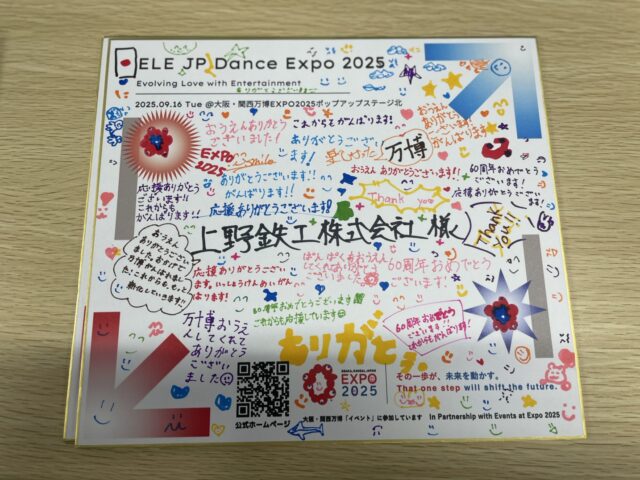 ELE JP Dance Expo 2025
Evolving Love with Entertainment
ありがとうございます
2025.09.16 Tue @大阪・関西万博EXPO2025ポップアップステージ北
おうえんありがとう
ございました!
これからもがんばります!
おうえん
ありがとう
ございます!
がんばります
EXPO
2025
Smile
ありがとうござい
ます!
楽しかった!
万博
60周年おめでとう
ございます!
応援ありがとうござい
ます!
おうえんありがとうございます!!
ありがとうございます!!
がんばります!!
応援ありがとう
ございます!!
これからも
がんばります!!
応援ありがとうございます!!
Thank you
Thank
You!!
上野鉄工株式会社様
おうえん
ありがとうござい
ました。おかげで
万博がんばれまし
た!これからも、もっと
進化していきます!!
応援ありがとうござい
ます。いっしょうけんめいがん
ばります!
ばんぱくをおうえん
してくれてありがとう
ございます!
60周年おめでとう
ございます!
60周年おめでとうございます
これからも応援しています
万博おうえ
んしてくれて
ありがとう
ござい
ました
60周年おめでとう
ございます!!
これからもがんばり
ます!
ありがとう
OSAKA, KANSAI, JAPAN
EXPO
2025
その一歩が、未来を動かす。
That one step will shift the future.
公式ホームページ
大阪・関西万博「イベント」に参加しています
In Partnership with Events at Expo 2025